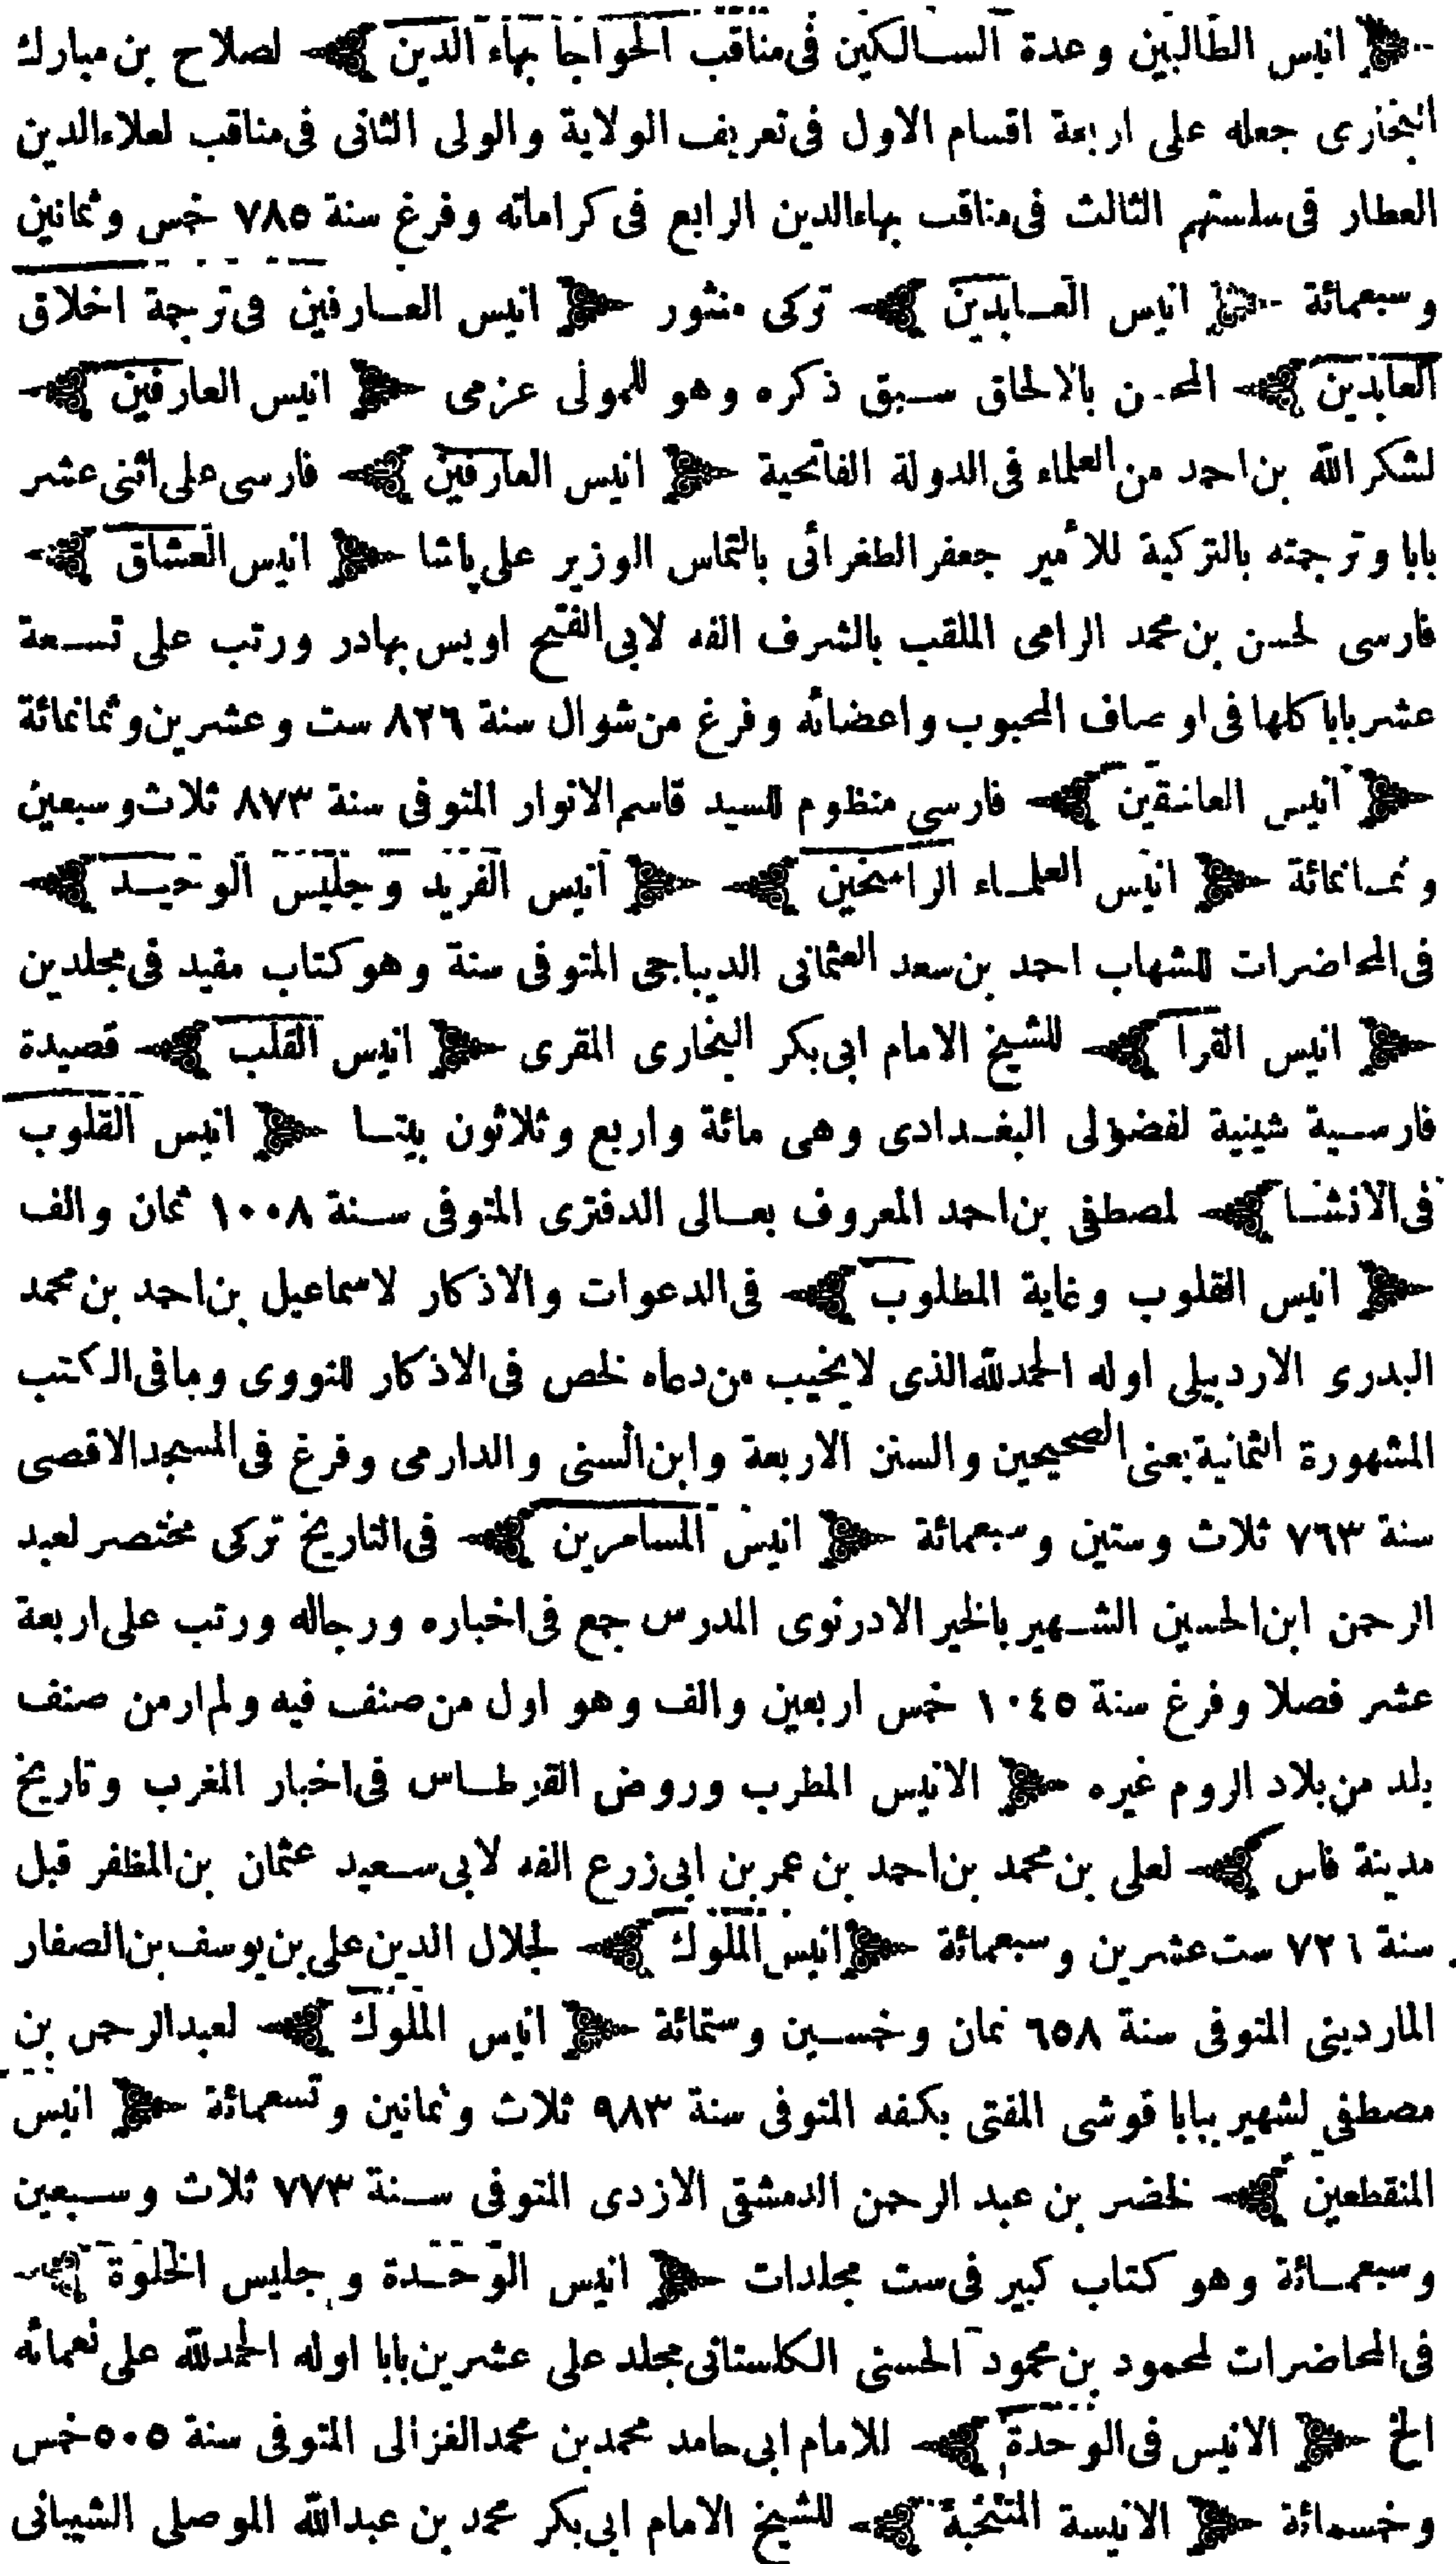 ﴿ انيس الطالبين وعدة السالكين فى مناقب الخواجا بهاء الدين ﴾ لصلاح بن مبارك
البخارى جعله على اربعة اقسام الاول فى تعريف الولاية والولى الثانى فى مناقب لعلاء الدين
العطار فى سلسلتهم الثالث فى مناقب بهاء الدين الرابع فى كراماته وفرغ سنة ٧٨٥ خمس وثمانين
وسبعمائة ﴿ انيس العابدين ﴾ تركى منثور ﴿ انيس العارفين فى ترجمة اخلاق
العابدين ﴾ بالالحاق سبق ذكره وهو للمولى عزمى ﴿ انيس العارفين ﴾
لشكر الله بن احمد من العلماء فى الدولة الفاتحية ﴿ انيس العارفين ﴾ فارسى على اثنى عشر
بابا وترجمته بالتركية للأمير جعفر الطغرائى بالتماس الوزير على پاشا ﴿ انيس العشاق ﴾
فارسى لحسن بن محمد الرامى الملقب بالشرف الفه لابى الفتح اويس بهادر ورتب على تسعة
عشر بابا كلها فى اوصاف المحبوب واعضائه وفرغ من شوال سنة ٨٢٦ ست وعشرين وثمانمائة
﴿ انيس العاشقين ﴾ فارسى منظوم للسيد قاسم الانوار المتوفى سنة ٨٧٣ ثلاث وسبعين
وثمانمائة ﴿ انيس العلماء الراسخين ﴾ ﴿ انيس الفريد وجليس الوحيد ﴾
فى المحاضرات للشهاب احمد بن سعد العثمانى الديباجى المتوفى سنة وهو كتاب مفيد فى مجلدين
﴿ انيس القرا ﴾ للشيخ الامام ابى بكر البخارى المقرى ﴿ انيس القلب ﴾ قصيدة
فارسية شينية لفضولى البغدادى وهى مائة واربع وثلاثون بيتا ﴿ انيس القلوب
فى الانشا ﴾ لمصطفى بن احمد المعروف بعالى الدفترى المتوفى سنة ١٠٠٨ ثمان والف
﴿ انيس القلوب وغاية المطلوب ﴾ فى الدعوات والاذكار لاسماعيل بن احمد بن محمد
البدرى الاردبيلى اوله الحمدلله الذى لايخيب من دعاه لخص فى الاذكار للنووى وما فى الكتب
المشهورة الثمانية يعنى الصحيحين والسنن الاربعة وابن السنى والدارمى وفرغ فى المسجد الاقصى
سنة ٧٦٣ ثلاث وستين وسبعمائة ﴿ انيس المسامرين ﴾ فى التاريخ تركى مختصر لعبد
الرحمن ابن الحسين الشهير بالخير الادرنوى المدرس جمع فى اخباره ورجاله ورتب على اربعة
عشر فصلا وفرغ سنة ١٠٤٥ خمس اربعين والف وهو اول من صنف فيه ولم ار من صنف
بلد من بلاد الروم غيره ﴿ الانيس المطرب وروض القرطاس فى اخبار المغرب وتاريخ
مدينة فاس ﴾ لعلى بن محمد بن احمد بن عمر بن ابى زرع الفه لابى سعيد عثمان بن المظفر قبل
سنة ٧٢٦ ست عشرين وسبعمائة ﴿ انيس الملوك ﴾ لجلال الدين على بن يوسف بن الصفار
الماردينى المتوفى سنة ٦٥٨ ثمان وخمسين وستمائة ﴿ انيس الملوك ﴾ لعبدالرحمن بن
مصطفى لشهير ببابا قوشى المفتى بكفه المتوفى سنة ٩٨٣ ثلاث وثمانين وتسعمائة ﴿ انيس
المنقطعين ﴾ لخضر بن عبد الرحمن الدمشقى الازدى المتوفى سنة ٧٧٣ ثلاث وسبعين
وسبعمائة وهو كتاب كبير فى ست مجلدات ﴿ انيس الوحدة وجليس الخلوة ﴾
فى المحاضرات لمحمود بن محمود الحسنى الكلستانى مجلد على عشرين بابا اوله الحمدلله على نعمائه
الخ ﴿ الانيس فى الوحدة ﴾ للامام ابى حامد محمد بن محمد الغزالى المتوفى سنة ٥٠٥ خمس
وخمسمائة ﴿ الانيسة المنتخبة ﴾ للشيخ الامام ابى بكر محمد بن عبدالله الموصلى الشيبانى